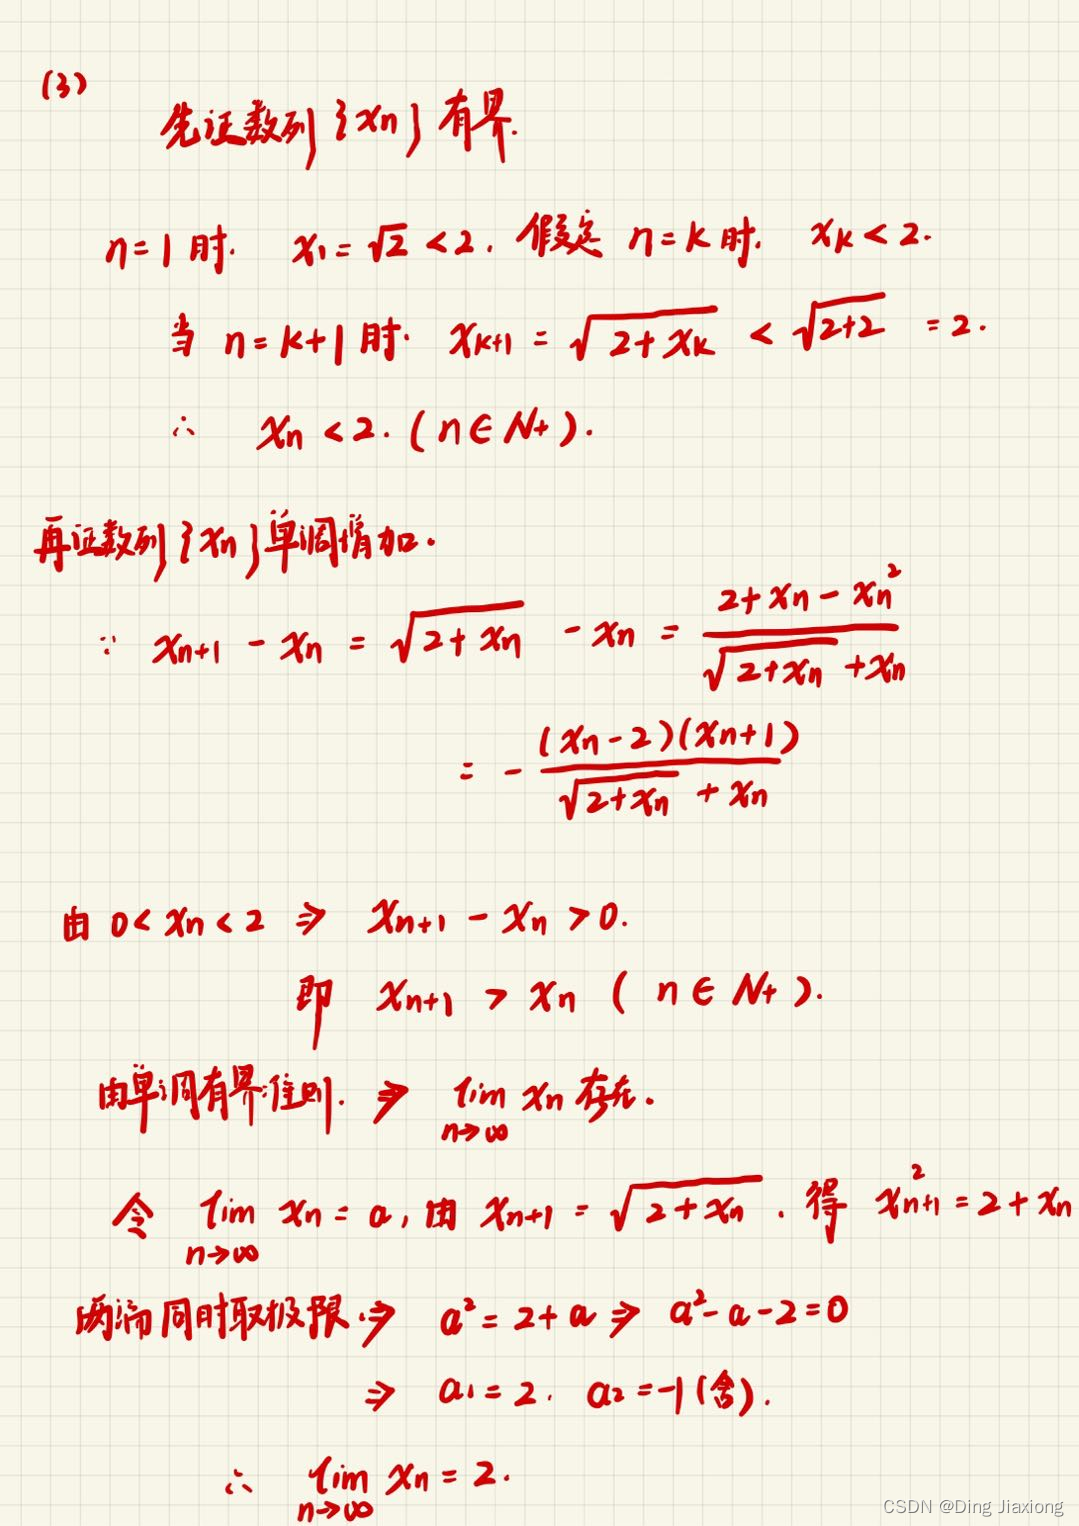 (3)
先证数列{xn}有界.
n=1时. x1=√2<2. 假定 n=k时. xk<2.
当 n=k+1时. xk+1=√(2+xk)<√(2+2)=2.
∴ xn<2.(n∈N+).
再证数列{xn}单调增加.
∵ xn+1-xn=√(2+xn)-xn=(2+xn-xn²)/(√(2+xn)+xn)
=-(xn-2)(xn+1)/(√(2+xn)+xn)
由 0<xn<2 ⇒ xn+1-xn>0.
即 xn+1>xn (n∈N+).
由单调有界准则. ⇒ lim n→∞ xn 存在.
令 lim n→∞ xn=a, 由 xn+1=√(2+xn). 得 x²n+1=2+xn
两端同时取极限. ⇒ a²=2+a ⇒ a²-a-2=0
⇒ a1=2. a2=-1(舍).
∴ lim n→∞ xn=2.
CSDN @Ding Jiaxiong